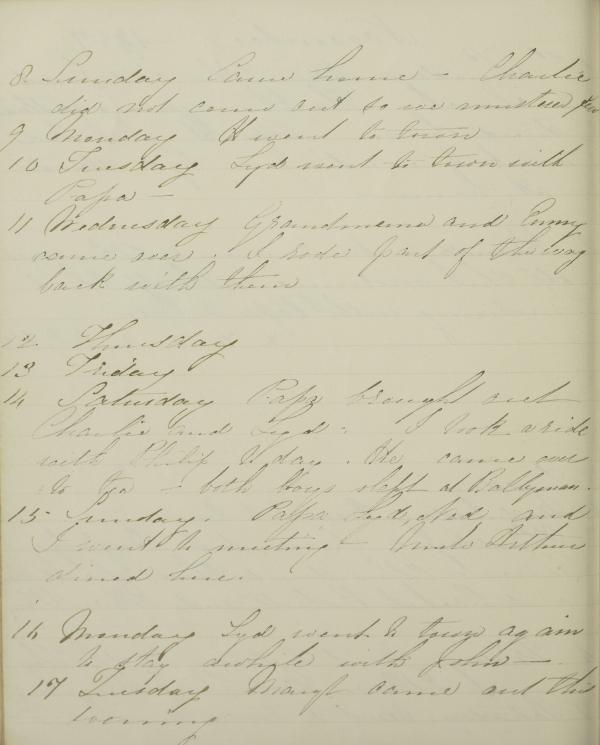 8 Sunday Came home - Charlie
did not come out so we mustered few
9 Monday H went to town
10 Tuesday Lyd went to town with
Papa -
11 Wednesday Grandmama and
came over. I rode part of the way
back with them
12 Thursday
13 Friday
14 Saturday Papa brought out
Charlie and Lyd. I took a ride
with Philip today. He came over
to tea - both boys slept at
15 Sunday. Papa Lyd, Ned, and
I went to meeting - Uncle Arthur
dined here.
16 Monday Lyd went to town again
to stay awhile with John -
17 Tuesday came out this
evening